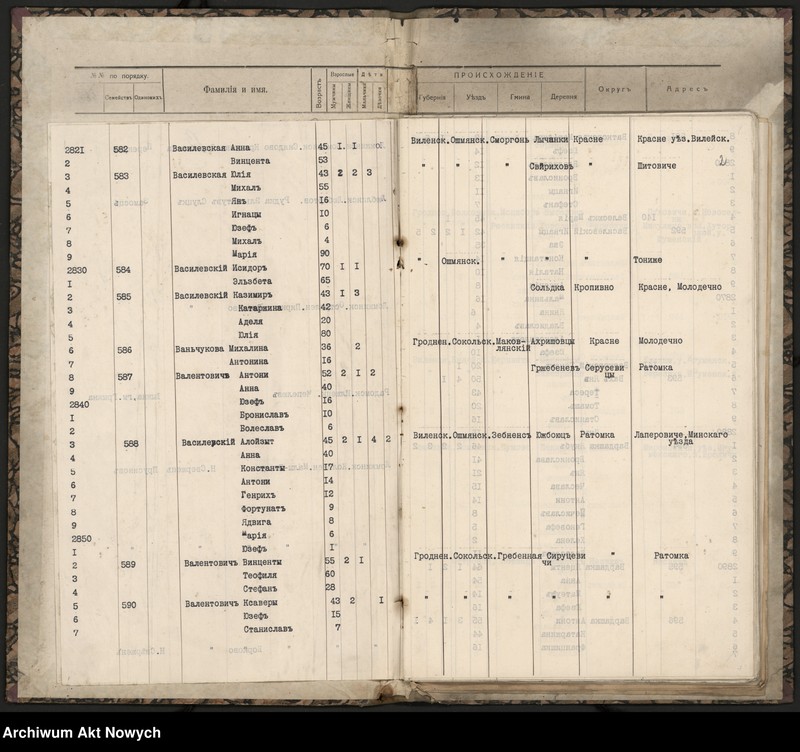 №№ по порядку. Фамилія и имя. Возрастъ Взрослые Дѣти ПРОИСХОЖДЕНІЕ Округъ Адресъ
Семействъ Одиночекъ Мужчины Женщины Мальчики Дѣвочки Губернія Уѣздъ Гмина Деревня
2821 582 Василевская Анна 45 I I Виленск. Ошмянск. Сморгонь Лычинки Красне Красне уѣз. Вилейск.
2 Винцента 53
3 583 Василевская Юлія 43 2 2 3 " " " Свириховъ " Шитовиче 2
4 Михалъ 55
5 Янъ 16
6 Игнацы 10
7 Юзефъ 6
8 Михалъ 4
9 Марія 90
2830 584 Василевскій Исидоръ 70 I I " Ошмянск. " " " Тониже
I Эльзбета 65
2 585 Василевскій Казимиръ 43 I 3 Сольдка Кропивно Красне, Молодечно
3 Катаринна 42
4 Аделя 20
5 Юлія 80
6 586 Ваньчукова Михалина 36 2 Гроднен. Сокольск. Маков-лянскій Ахришовцы Красне Молодечно
7 Антонина 16
8 587 Валентовичъ Антони 52 2 I 2 Гржебеневъ Серусевицы Ратомка
9 Анна 40
2840 Юзефъ 16
I Брониславъ 10
2 Волеславъ 6
3 588 Василерскій Алойзыт 45 2 I 4 2 Виленск. Ошмянск. Зебненсъ Южбоюцъ Ратомка Лаперовиче, Минскаго уѣзда
4 Анна 40
5 Константы 17
6 Антони 14
7 Генрихъ 12
8 Фортунатъ 9
9 Ядвига 8
2850 Марія 6
I Юзефъ I
2 589 Валентовичъ Винценты 55 2 I Гроднен. Сокольск. Гребенная Сируцевичи " Ратомка
3 Теофиля 60
4 Стефанъ 28
5 590 Валентовичъ Ксаверы 43 2 I " " " " " "
6 Юзефъ 15
7 Станиславъ 7
Archiwum Akt Nowych